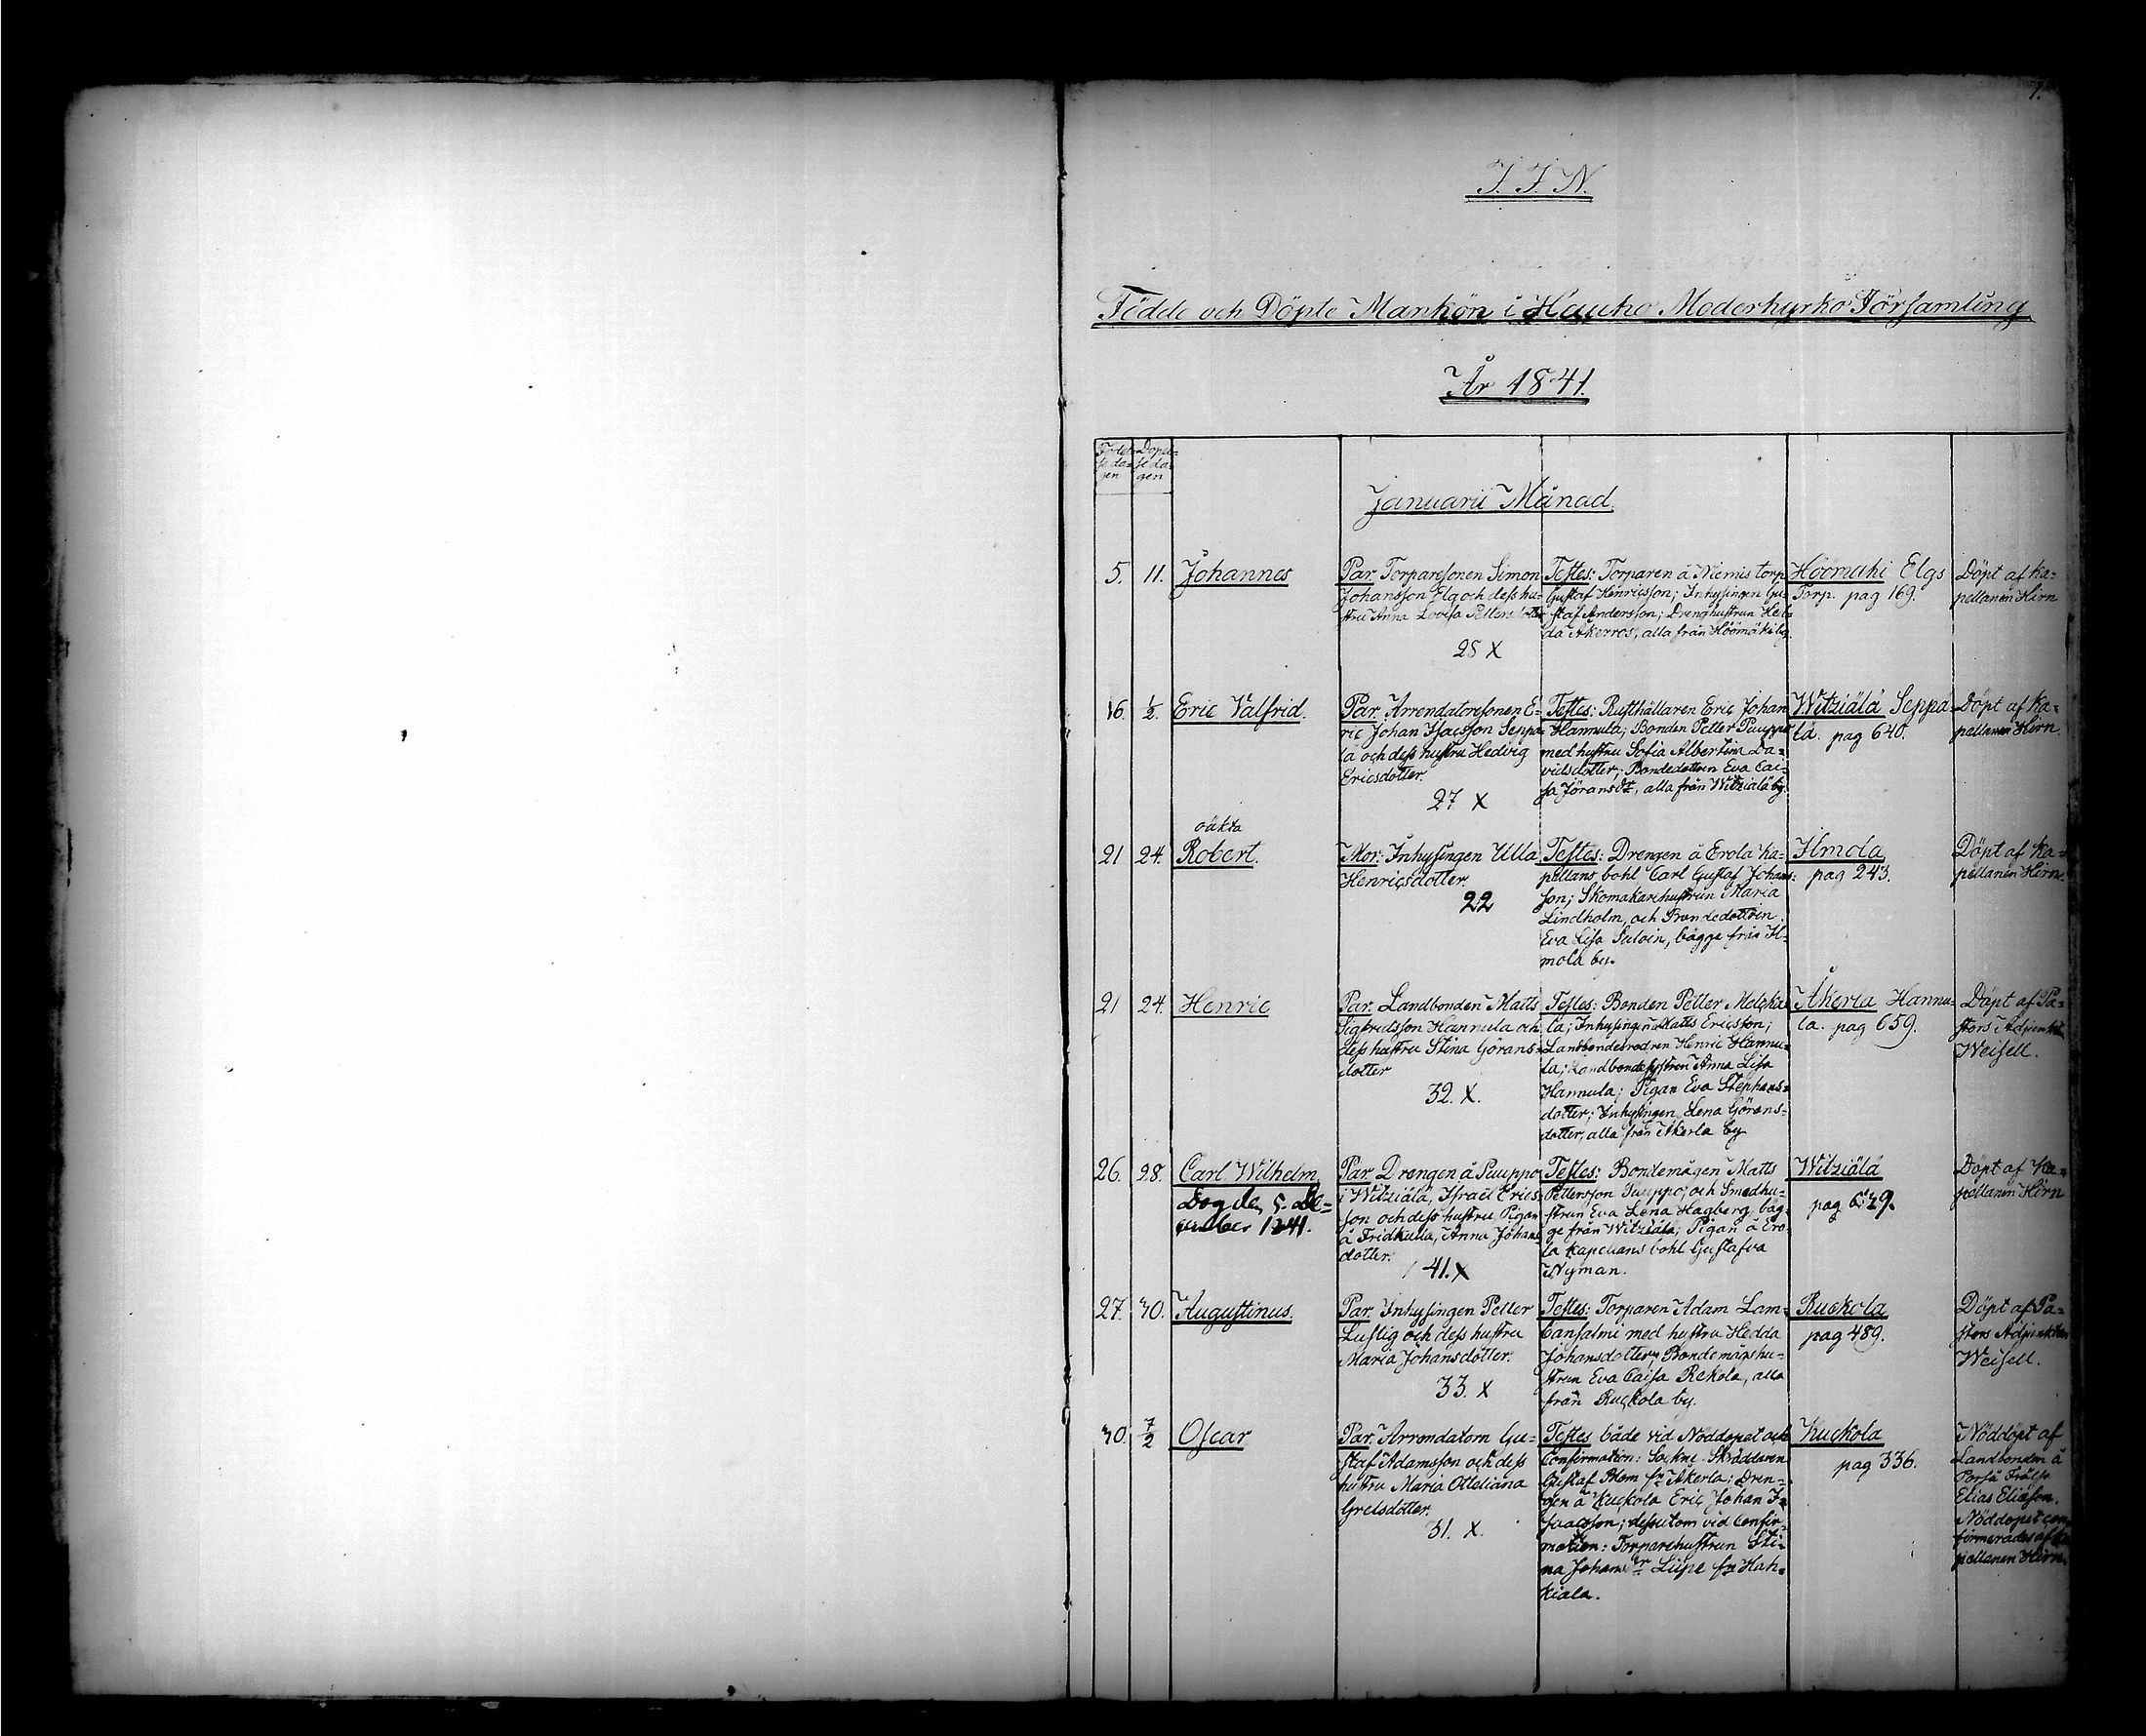 1.
I. I. N.
Födde och Döpte Mankön i Hauho Moderkyrko Församling
År 1841.
Födel= Döpel=
se da= se da=
gen gen
Januarii Månad.
5. 11. Johannes
Par. Torparesonen Simon
Johansson Elg och dess hu=
stru Anna Lovisa Pettersdotter
28 X
Testes: Torparen å Niemis torp
Gustaf Henricsson; Inhysingen Gu=
staf Andersson; Drenghustrun Hed
da Åkerros, alla från Höömäki by.
Elgs
Torp. pag 169.
Döpt af Ka=
pellanen Hirn
16. 1/2. Eric Valfrid.
Par. Arrendatoresonen E=
ric Johan Isacsson Seppä
lä och dess hustru Hedvig
Ericsdotter.
27 X
Testes: Rusthållaren Eric Johan
Hannula; Bonden Petter Puuppo
med hustru Sofia Albertina Da=
vidsdotter; Bondedottren Eva Cai=
sa Jöransdr, alla från Witziälä by.
Witziälä Seppä=
lä. pag 640.
Döpt af Ka=
pellanen Hirn.
oäkta
21 24. Robert.
Mor: Inhysingen Ulla
Henricsdotter.
22
Testes: Drengen å Erola Ka=
pellans bohl Carl Gustaf Johans=
son; Skomakarehustrun Maria
Lindholm, och Bondedottren
Eva Lisa, bägge från Il=
mola by.
Ilmola
pag 243.
Döpt af Ka=
pellanen Hirn.
21 24. Henric
Par. Landbonden Matts
Sigfridsson Hannula och
dess hustru Stina Görans=
dotter
32. X.
Testes: Bonden Petter
la; Inhysingen Matts Ericsson;
Henric Hannu=
la; Landbondesystren Anna Lisa
Hannula; Pigan Eva Stephans=
dotter; Inhysingen Lena Görans=
dotter, alla från Åkerla by
Åkerla Hannu=
la. pag 659.
Döpt af Pa=
stors Adjunkten
Weisell.
26. 28. Carl Wilhelm
Dog den 5. De=
cember 1841.
Par. Drengen å Puuppo
i Witziälä, Israel Erics
son och dess hustru Pigan
å Fridkulla, Anna Johans
dotter.
41. X
Testes: Bondemågen Matts
Pettersson Puuppo; och Smedhu=
strun Eva Lena Hagberg, bäg=
ge från Witziälä; Pigan å Ero
la Kapellans bohl Gustafva
Nyman.
Witziälä
pag
Döpt af Ka=
pellanen Hirn
27. 30. Augustinus.
Par. Inhysingen Petter
Lustig och dess hustru
Maria Johansdotter.
33. X
Testes: Torparen Adam Lam=
bansalmi med hustru Hedda
Johansdotter; Bondemågshu=
strun Eva Caisa Rekola, alla
från Ruckola by.
Ruckola
pag 489.
Döpt af Pa=
stors Adjunkten
Weisell.
30. 7/2 Oscar
Par. Arrendatorn Gu=
staf Adamsson och dess
hustru Maria Otteliana
Gretsdotter.
31. X.
Testes både vid Nöddopet och
Confirmation: Sockne Skräddaren
Gustaf Blom fr Åkerla; Dren=
gen å Kuckola Eric Johan I=
saacsson; dessutom vid Confir=
mation: Torparehustrun Sti=
na Johansdr Liipe fr Hah=
kiala.
Kuckola
pag 336.
Nöddöpt af
Landbonden å
Porsa Frälse
Elias Eliäson.
Nöddopet con
firmerades af Ka
pellanen Hirn.